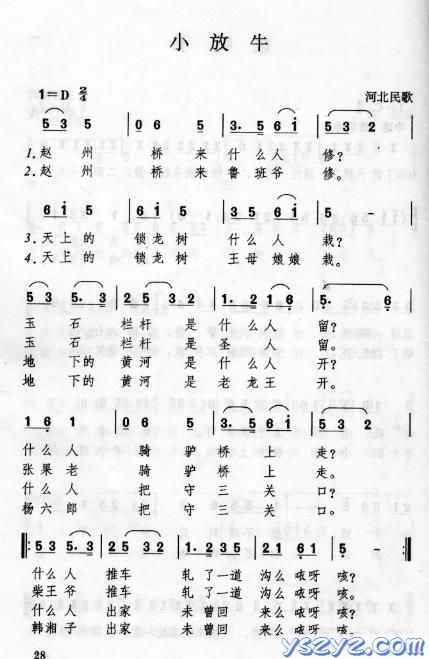 小放牛
1=D 2/4 河北民歌
5 3 5 | 0 6 5 | 3. 5 6 i | 5 3 5 3 2 |
1.赵州 桥来 什么人 修?
2.赵州 桥来 鲁班爷 修。
6 i 5 | 6 i 5 | 6 1 2 1 6 | 5 - |
3.天上的 锁龙树 什么人 栽?
4.天上的 锁龙树 王母娘娘 栽。
5 3 5. 3 | 2 5 3 2 | 1. 2 1 6 | 5. 6 |
玉石 栏杆 是什么人 留?
玉石 栏杆 是圣人 留。
地下的 黄河 是什么人 开?
地下的 黄河 是老龙王 开。
1 6 1 | 0 6 5 | 3. 5 6 i | 5 3 2 |
什么人 骑驴桥上 走?
张果老 骑驴桥上 走。
什么人 把守三关 口?
杨六郎 把守三关 口。
5 3 5. 3 | 2 5 3 2 | 1. 2 3 5 | 2 1 6 1 | 5 -
什么人 推车 轧了一道 沟么咴呀 咳?
柴王爷 推车 轧了一道 沟么咴呀 咳。
什么人 出家 未曾回 来么咴呀 咳?
韩湘子 出家 未曾回 来么咴呀 咳。
28
yszyz.com